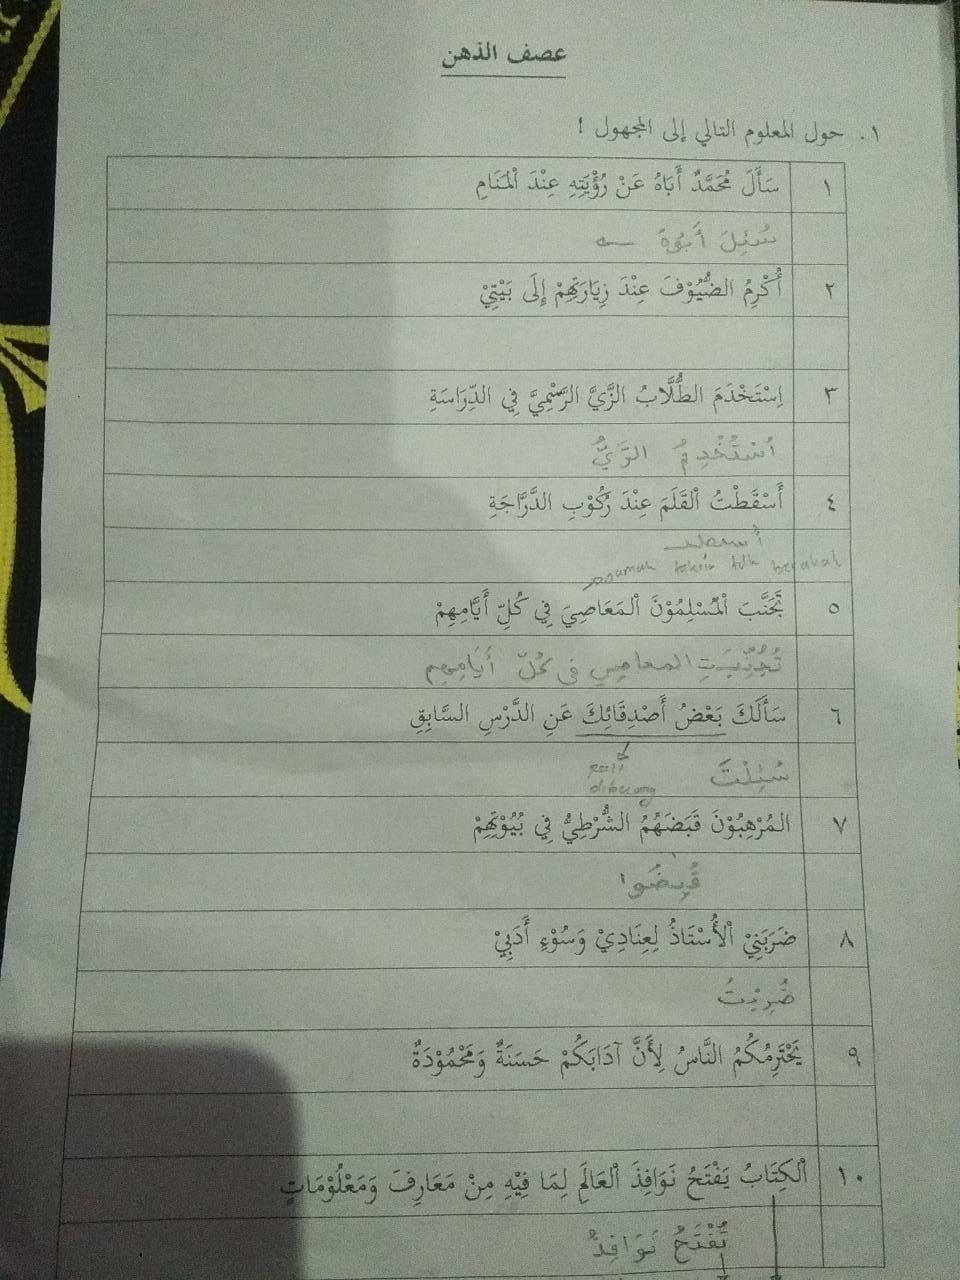 عصف الذهن
١. حول المعلوم التالي إلى المجهول !
١ سَأَلَ مُحَمَّدٌ أَبَاهُ عَنْ رُؤْيَتِهِ عِنْدَ الْمَنَامِ
سُئِلَ أَبُوهُ
٢ أُكْرِمُ الضُّيُوْفَ عِنْدَ زِيَارَتِهِمْ إِلَى بَيْتِيْ
٣ اِسْتَخْدَمَ الطُّلَّابُ الزَّيَّ الرَّسْمِيَّ فِي الدِّرَاسَةِ
اُسْتُخْدِمُ الزَّيُّ
٤ أَسْقَطْتُ الْقَلَمَ عِنْدَ رُكُوْبِ الدَّرَّاجَةِ
jamak taksir tdk berakal
٥ تَجَنَّبَ الْمُسْلِمُوْنَ الْمَعَاصِيَ فِي كُلِّ أَيَّامِهِمْ
تُجُنِّبَتِ المعاصي في كُلّ أيامهم
٦ سَأَلَكَ بَعْضُ أَصْدِقَائِكَ عَنِ الدَّرْسِ السَّابِقِ
سُئِلْتَ
dibuang
٧ المُرْهِبُوْنَ قَبَضَهُمُ الشُّرْطِيُّ فِي بُيُوْتِهِمْ
قُبِضُوا
٨ ضَرَبَنِيْ الْأُسْتَاذُ لِعِنَادِيْ وَسُوْءِ أَدَبِيْ
ضُرِبْتُ
٩ يَحْتَرِمُكُمُ النَّاسُ لِأَنَّ آدَابَكُمْ حَسَنَةٌ وَمَحْمُوْدَةٌ
١٠ اَلْكِتَابُ يَفْتَحُ نَوَافِذَ الْعَالَمِ لِمَا فِيْهِ مِنْ مَعَارِفَ وَمَعْلُوْمَاتٍ
تُفْتَحُ نَوَافِذُ